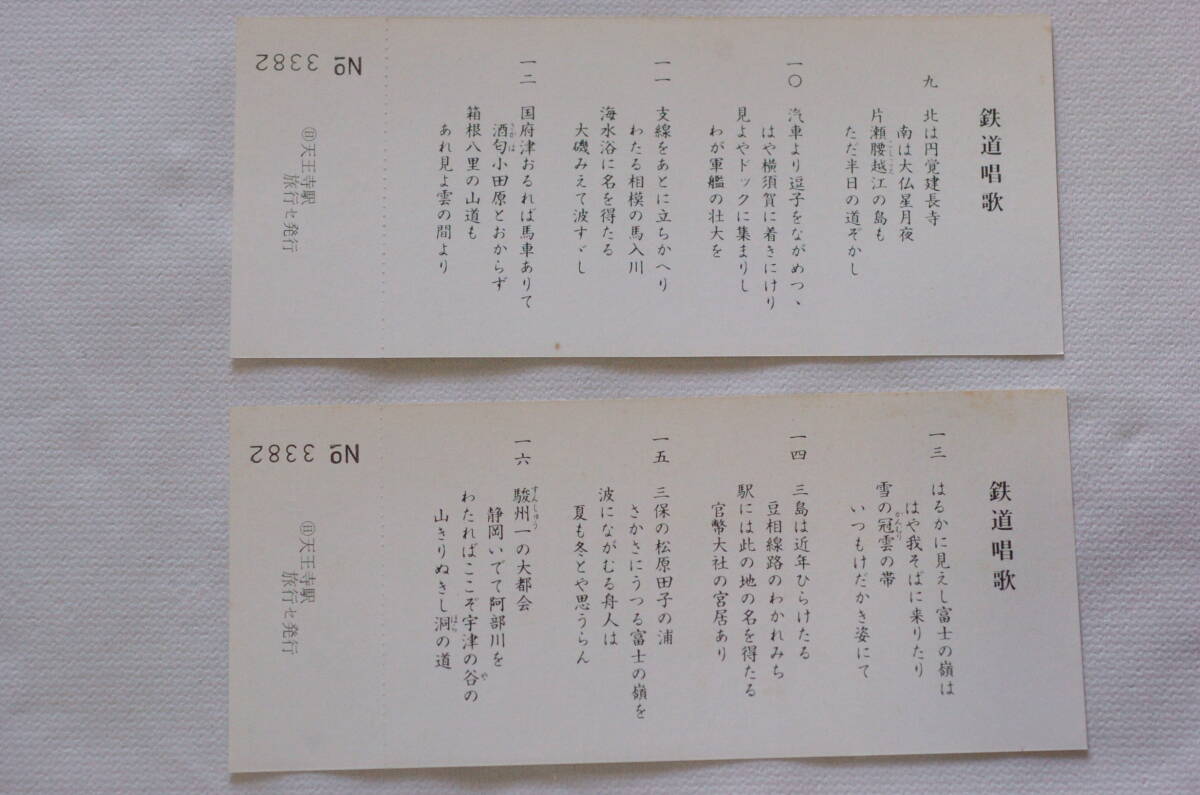 鉄道唱歌
九 北は円覚建長寺
南は大仏星月夜
片瀬腰越江の島も
ただ半日の道ぞかし
一〇 汽車より逗子をながめつゝ
はや横須賀に着きにけり
見よやドックに集まりし
わが軍艦の壮大を
一一 支線をあとに立ちかへり
わたる相模の馬入川
海水浴に名を得たる
大磯みえて波すゞし
一二 国府津おるれば馬車ありて
酒匂小田原とおからず
箱根八里の山道も
あれ見よ雲の間より
№ 3382
㊐天王寺駅
旅行セ発行
鉄道唱歌
一三 はるかに見えし富士の嶺は
はや我そばに来りたり
雪の冠雲の帯
いつもけだかき姿にて
一四 三島は近年ひらけたる
豆相線路のわかれみち
駅には此の地の名を得たる
官幣大社の宮居あり
一五 三保の松原田子の浦
さかさにうつる富士の嶺を
波にながむる舟人は
夏も冬とや思うらん
一六 駿州一の大都会
静岡いでて阿部川を
わたればここぞ宇津の谷の
山きりぬきし洞の道
№ 3382
㊐天王寺駅
旅行セ発行